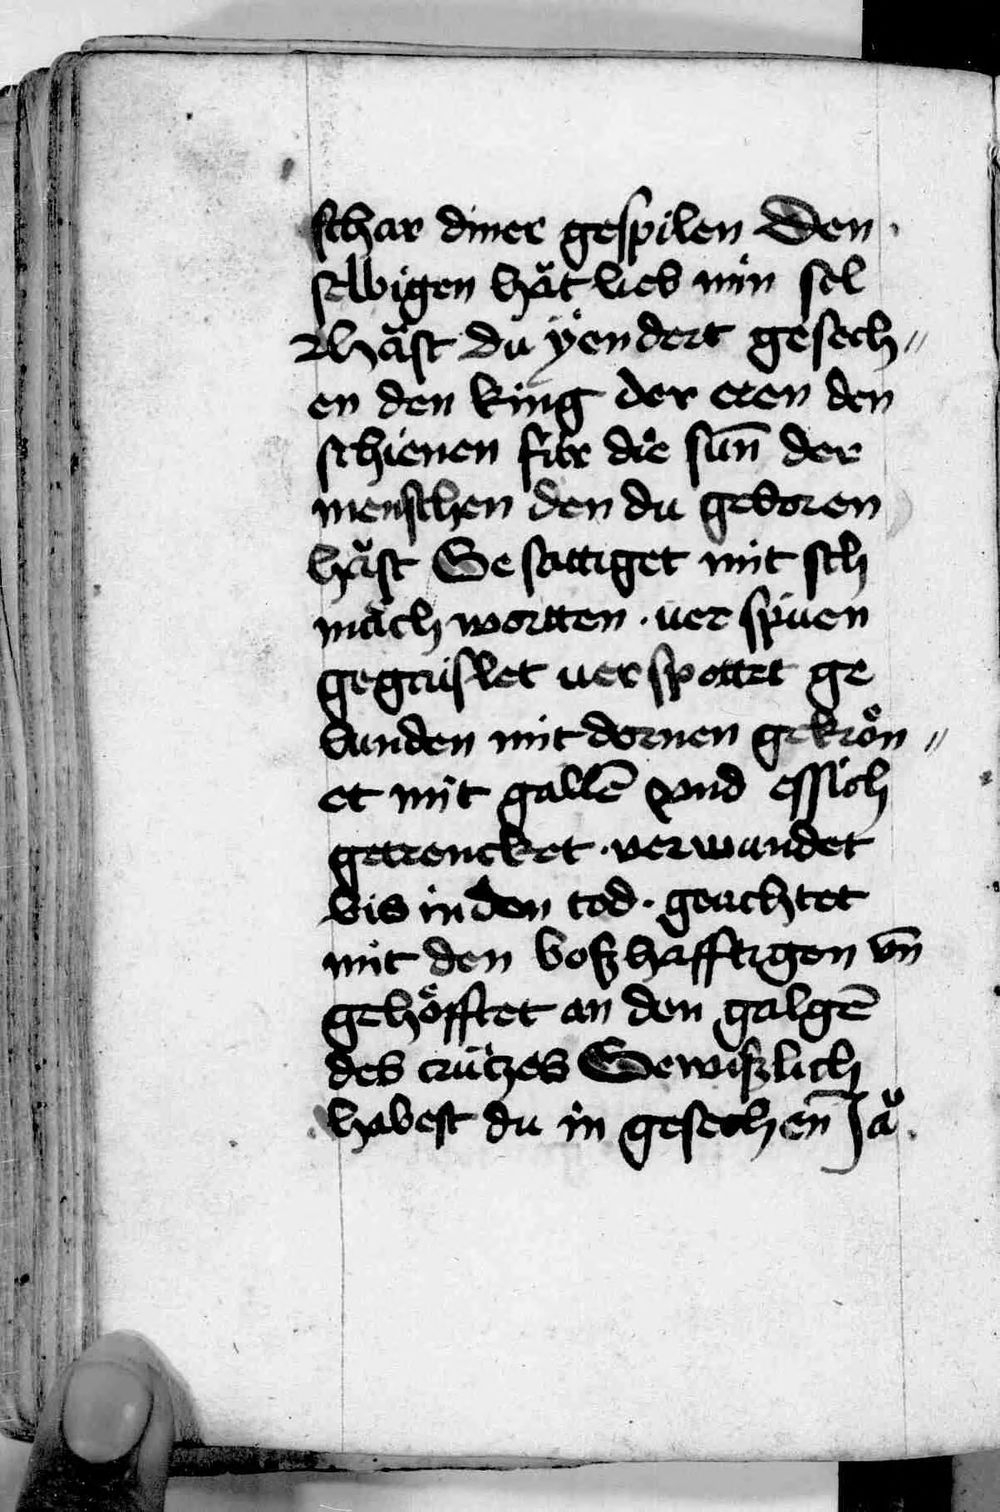 schar diner gespilen Den
selbigen hăt lieb min sel
Hăst du yendert gesech〃
en den king der eren den
schienen fúr die sun̄ der
menschen den du geboren
hăst Gesattiget mit sch
mach wortten · verspúen
gegaislet verspottet ge
bunden mit dornen gekrőn〃
et mit gallē vnd essich
getrencket · verwundet
bis in den tod · geachtet
mit den boßhafftigen vn̄
gehőfftet an den galgē
des crútzes Gewißlich
habest du in gesechen̄ Jă